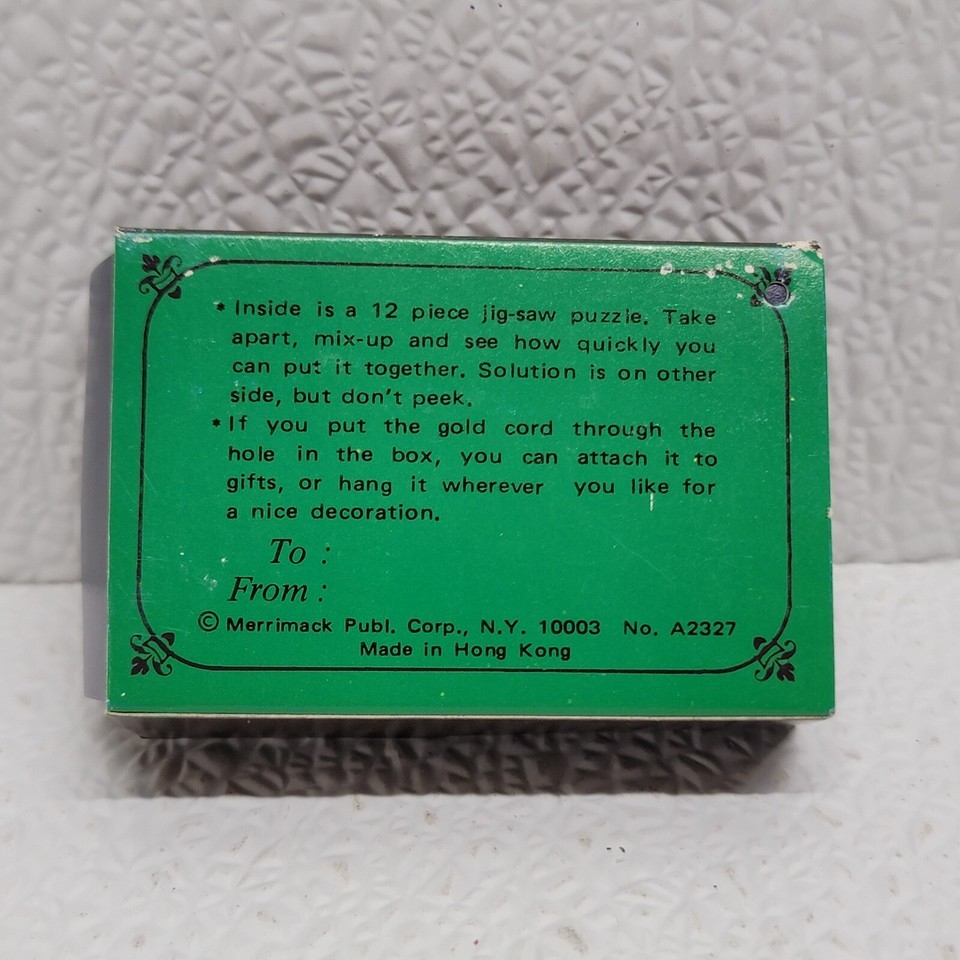 * Inside is a 12 piece jig-saw puzzle. Take
apart, mix-up and see how quickly you
can put it together. Solution is on other
side, but don't peek.
* If you put the gold cord through the
hole in the box, you can attach it to
gifts, or hang it wherever you like for
a nice decoration.
To :
From :
© Merrimack Publ. Corp., N.Y. 10003 No. A2327
Made in Hong Kong